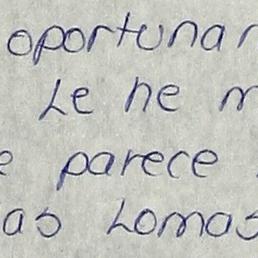 oportunar
Le he m
e parece
as Lomas